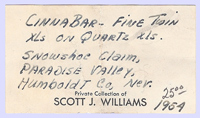 CINNABAR - FINE TWIN
XLS ON QUARTZ XLS.
SNOWSHOE CLAIM,
PARADISE VALLEY,
HUMBOLDT CO, NEV.
Private Collection of
SCOTT J. WILLIAMS
25.00
1954